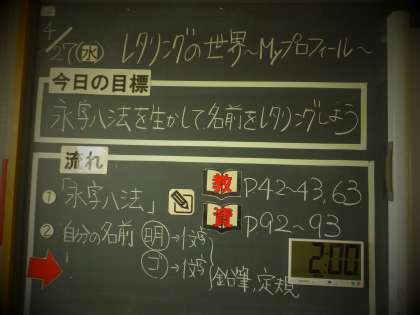 4/27(水) レタリングの世界~Myプロフィール~
今日の目標
永字八法を生かして、名前をレタリングしよう
流れ
① 「永字八法」 教 P42~43,63
資 P92~93
② 自分の名前 明→1文字
ゴ→1文字 鉛筆,定規
2:00